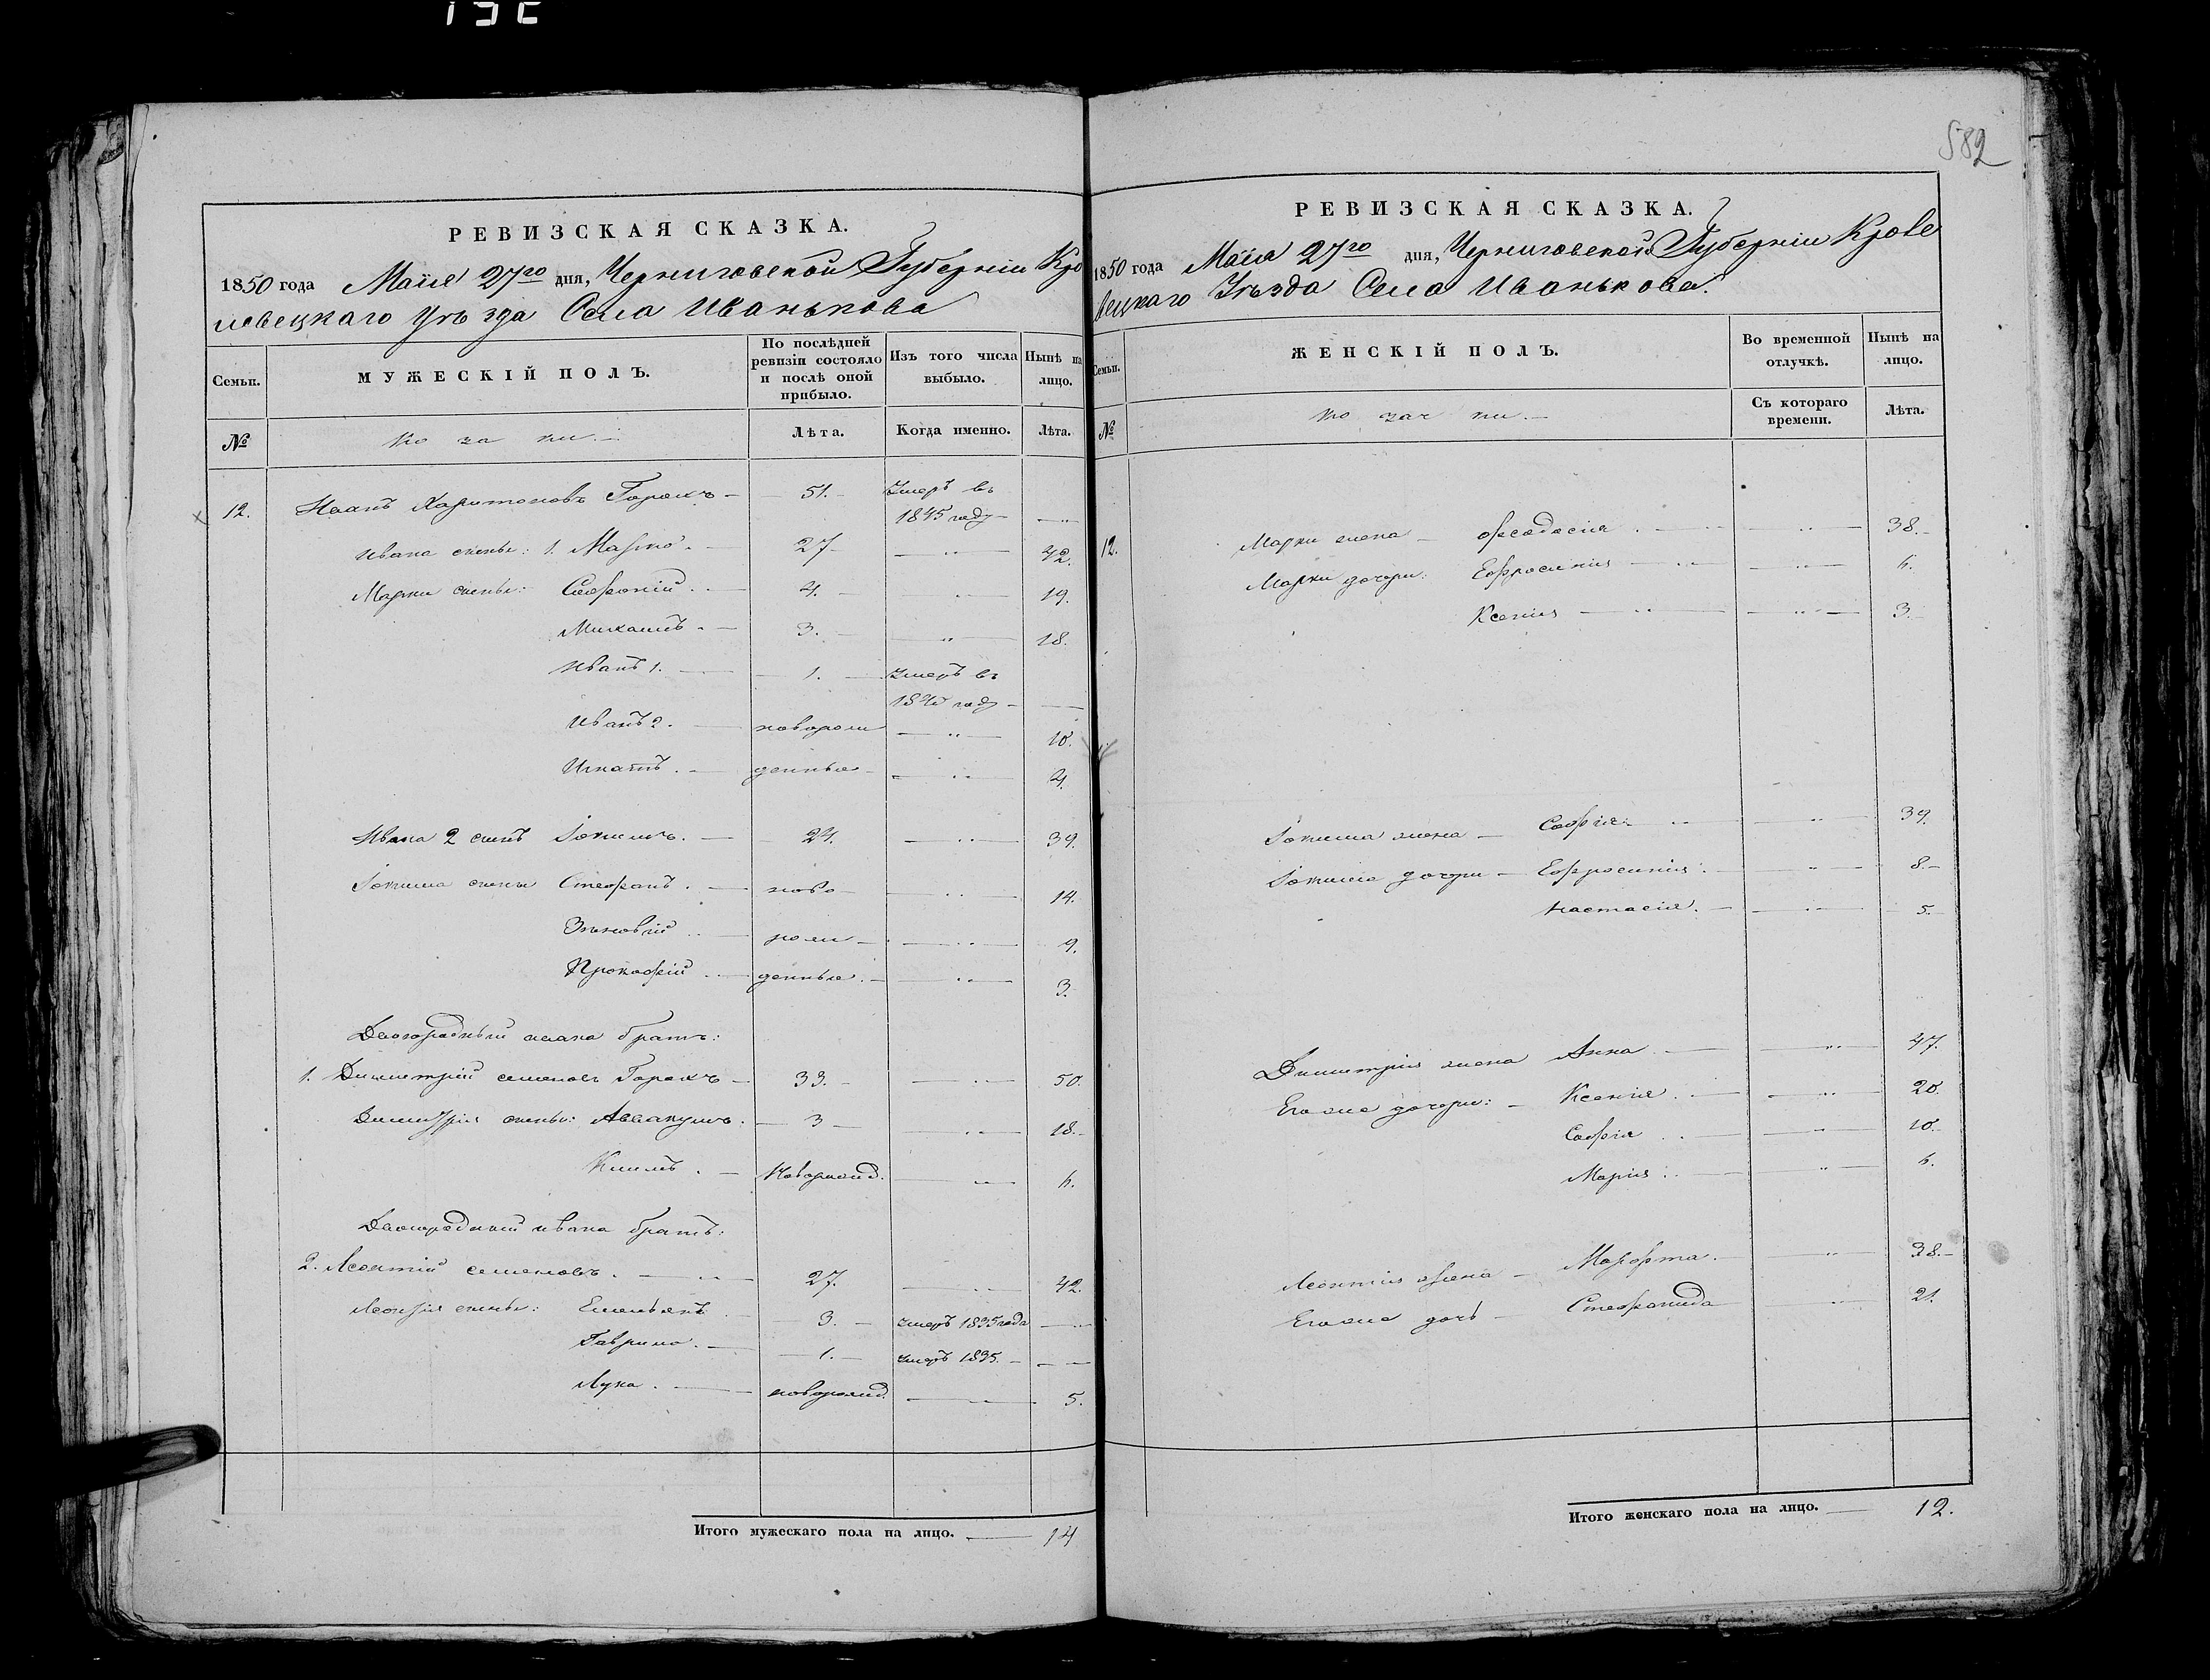 582
РЕВИЗСКАЯ СКАЗКА.
1850 года Маія 27го дня, Черниговской Губерніи Кро
левецкаго Уѣзда Села Иванькова
Семьи.
МУЖЕСКІЙ ПОЛЪ.
По послѣдней ревизіи состояло и послѣ оной прибыло.
Изъ того числа выбыло.
Нынѣ на лицо.
№
козаки.
Лѣта.
Когда именно.
Лѣта.
12. Иванъ Харитоновъ 51. Умеръ въ
1845 году
Ивана сыны: 1. Марко. 27 42.
Марки сыны: Софроній. 4. 19.
Михаилъ. 3. 18.
Иванъ 1. 1. Умеръ въ
году
Иванъ 2. новорож 10.
Игнатъ. денные 4.
Ивана 2 сынъ Іокимъ. 24. 39.
Іокима сыны Стефанъ. ново 14.
Зѣновій рож 9.
Прокофій денные. 3.
Двоюродный Ивана братъ:
1. Димитрій Семеновъ 33. 50.
Димитрія сыны: Аввакумъ. 3 18.
Климъ. Новорожд. 6.
Двоюродный Ивана братъ:
2. Леонтій Семеновъ. 27. 42.
Леонтія сыны: Емельянъ 3. умеръ 1835 года
Гаврило. 1. умеръ 1835.
Лука. новорожд. 5.
Итого мужескаго пола на лицо. 14
РЕВИЗСКАЯ СКАЗКА.
1850 года Маія 27го дня, Черниговской Губерніи Кроле
вецкаго Уѣзда Села Иванькова.
Семьи.
ЖЕНСКІЙ ПОЛЪ.
Во временной отлучкѣ.
Нынѣ на лицо.
№
козачки.
Съ котораго времени.
Лѣта.
12. Марки жена Феодосія 38.
Марки дочери: Ефросинія 6.
Ксенія 3.
Іокима жена Софія 39.
Іокима дочери Ефросинія 8.
Настасія. 5.
Димитрія жена Анна 47.
Его же дочери: Ксенія. 20.
Софія 10.
Марія. 6.
Леонтія жена Марфта. 38.
Его же дочь Стефанида 21.
Итого женскаго пола на лицо. 12.